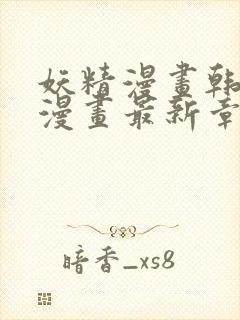 妖精漫畫韩
漫畫最新章
暗香_xs8